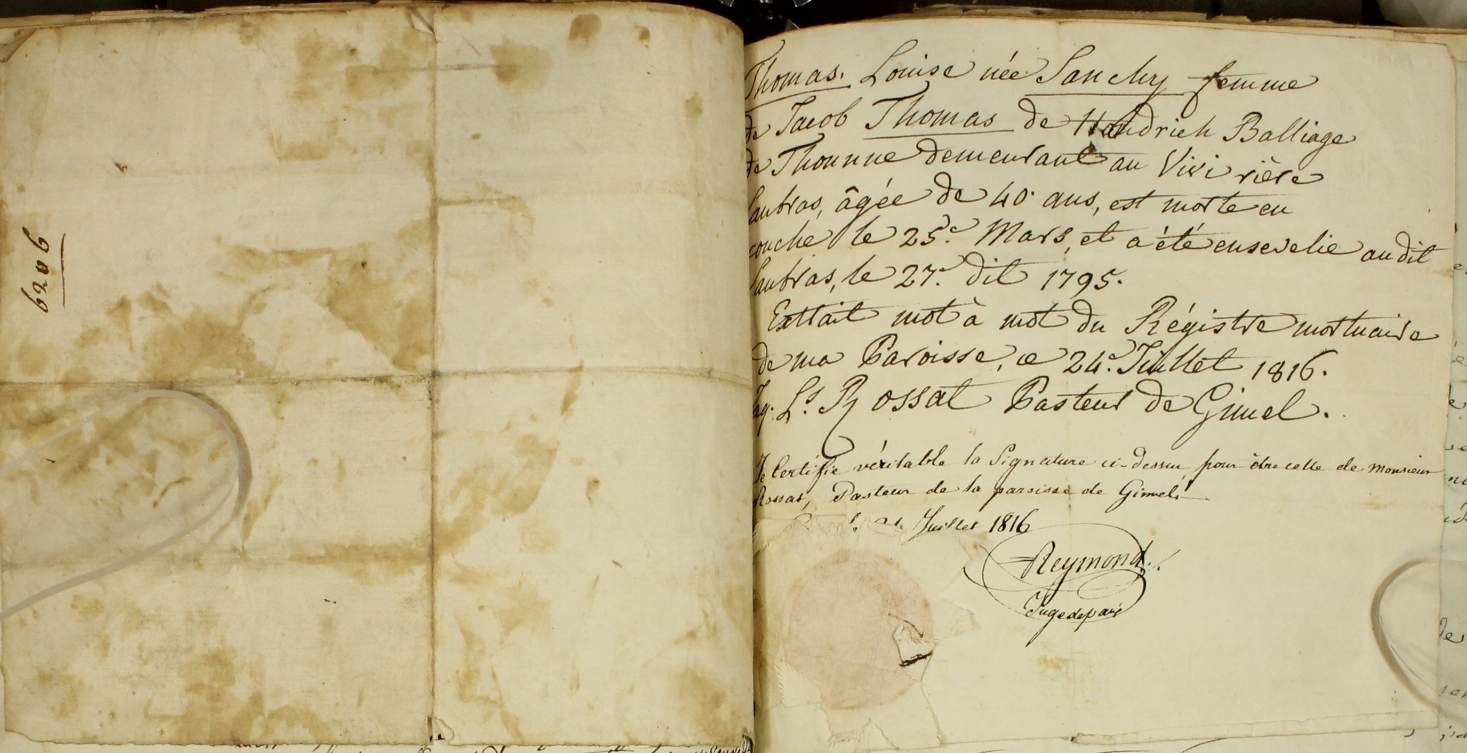 6206
Thomas. Louise née Sanchy femme
de Jacob Thomas de Handrich Balliage
de Thounne demeurant au Vivi rière
Saubras, âgée de 40. ans, est morte en
couche le 25e. Mars, et a été ensevelie au dit
Saubras, le 27e. dit 1795.
Extrait mot à mot du Régistre mortuaire
de ma Paroisse, ce 24e. Juillet 1816.
Jaq. Ls. Rossat Pasteur de Gimel.
Je Certifie véritable la Signature ci-dessus pour être celle de monsieur
Rossat, Pasteur de la paroisse de Gimel.
Juillet 1816
Reymond.
Juge de paix